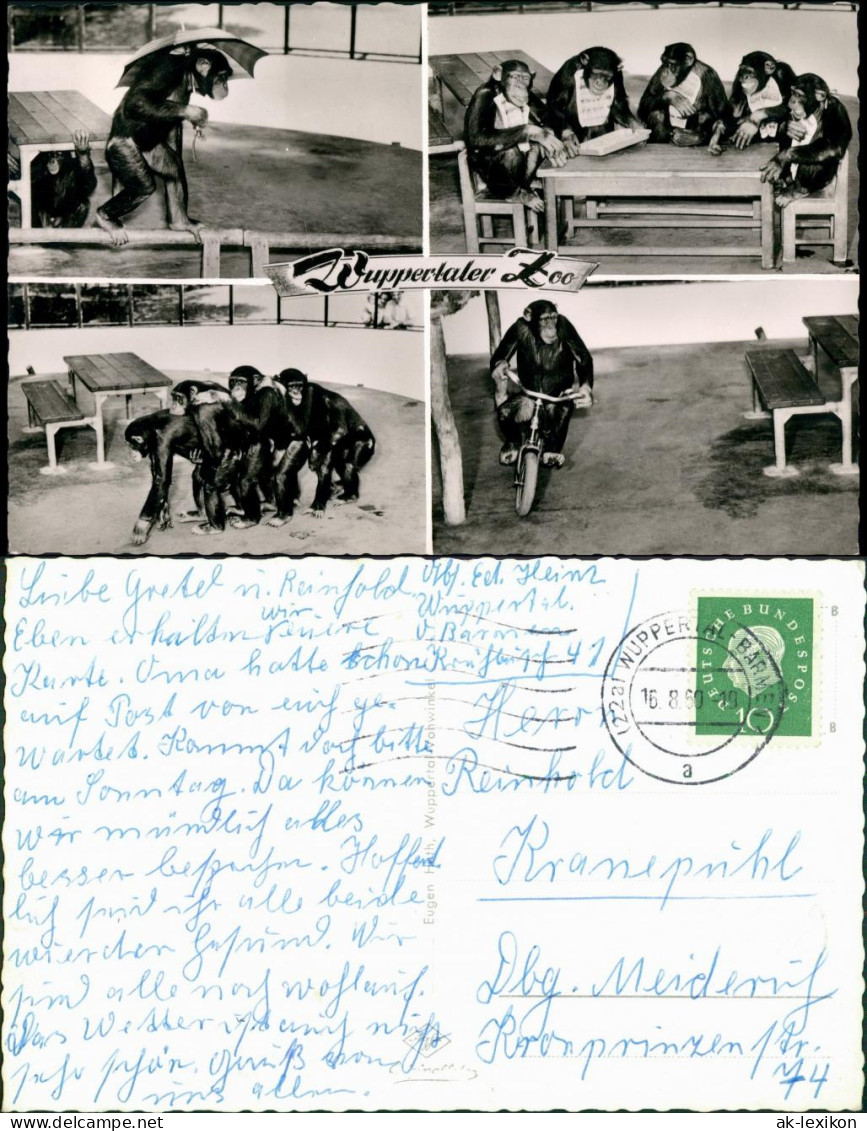 Wuppertaler Zoo
Liebe Gretel u. Reinhold
Eben erhalten wir Eure
Karte. Oma hatte schon
auf Post von euch ge-
wartet. Kommt doch bitte
am Sonntag. Da können
wir mündlich alles
besser besprechen. Hoffent
lich seid ihr alle beide
wieder gesund. Wir
sind alle noch wohlauf.
Das Wetter ist auch nicht
sehr schön. Gruß von
uns allen.
Eugen Huth, Wuppertal-Vohwinkel
Abs. Ed. Heinz
Wuppertal.
Barmen
41
(22a) WUPPERTAL-BARMEN
16.8.60
a
DEUTSCHE BUNDESPOST
10
B
B
Herr
Reinhold
Kranepühl
Dbg. Meiderich
Kronprinzenstr.
74
www.ansichtskarten-lexikon.de
ak-lexikon